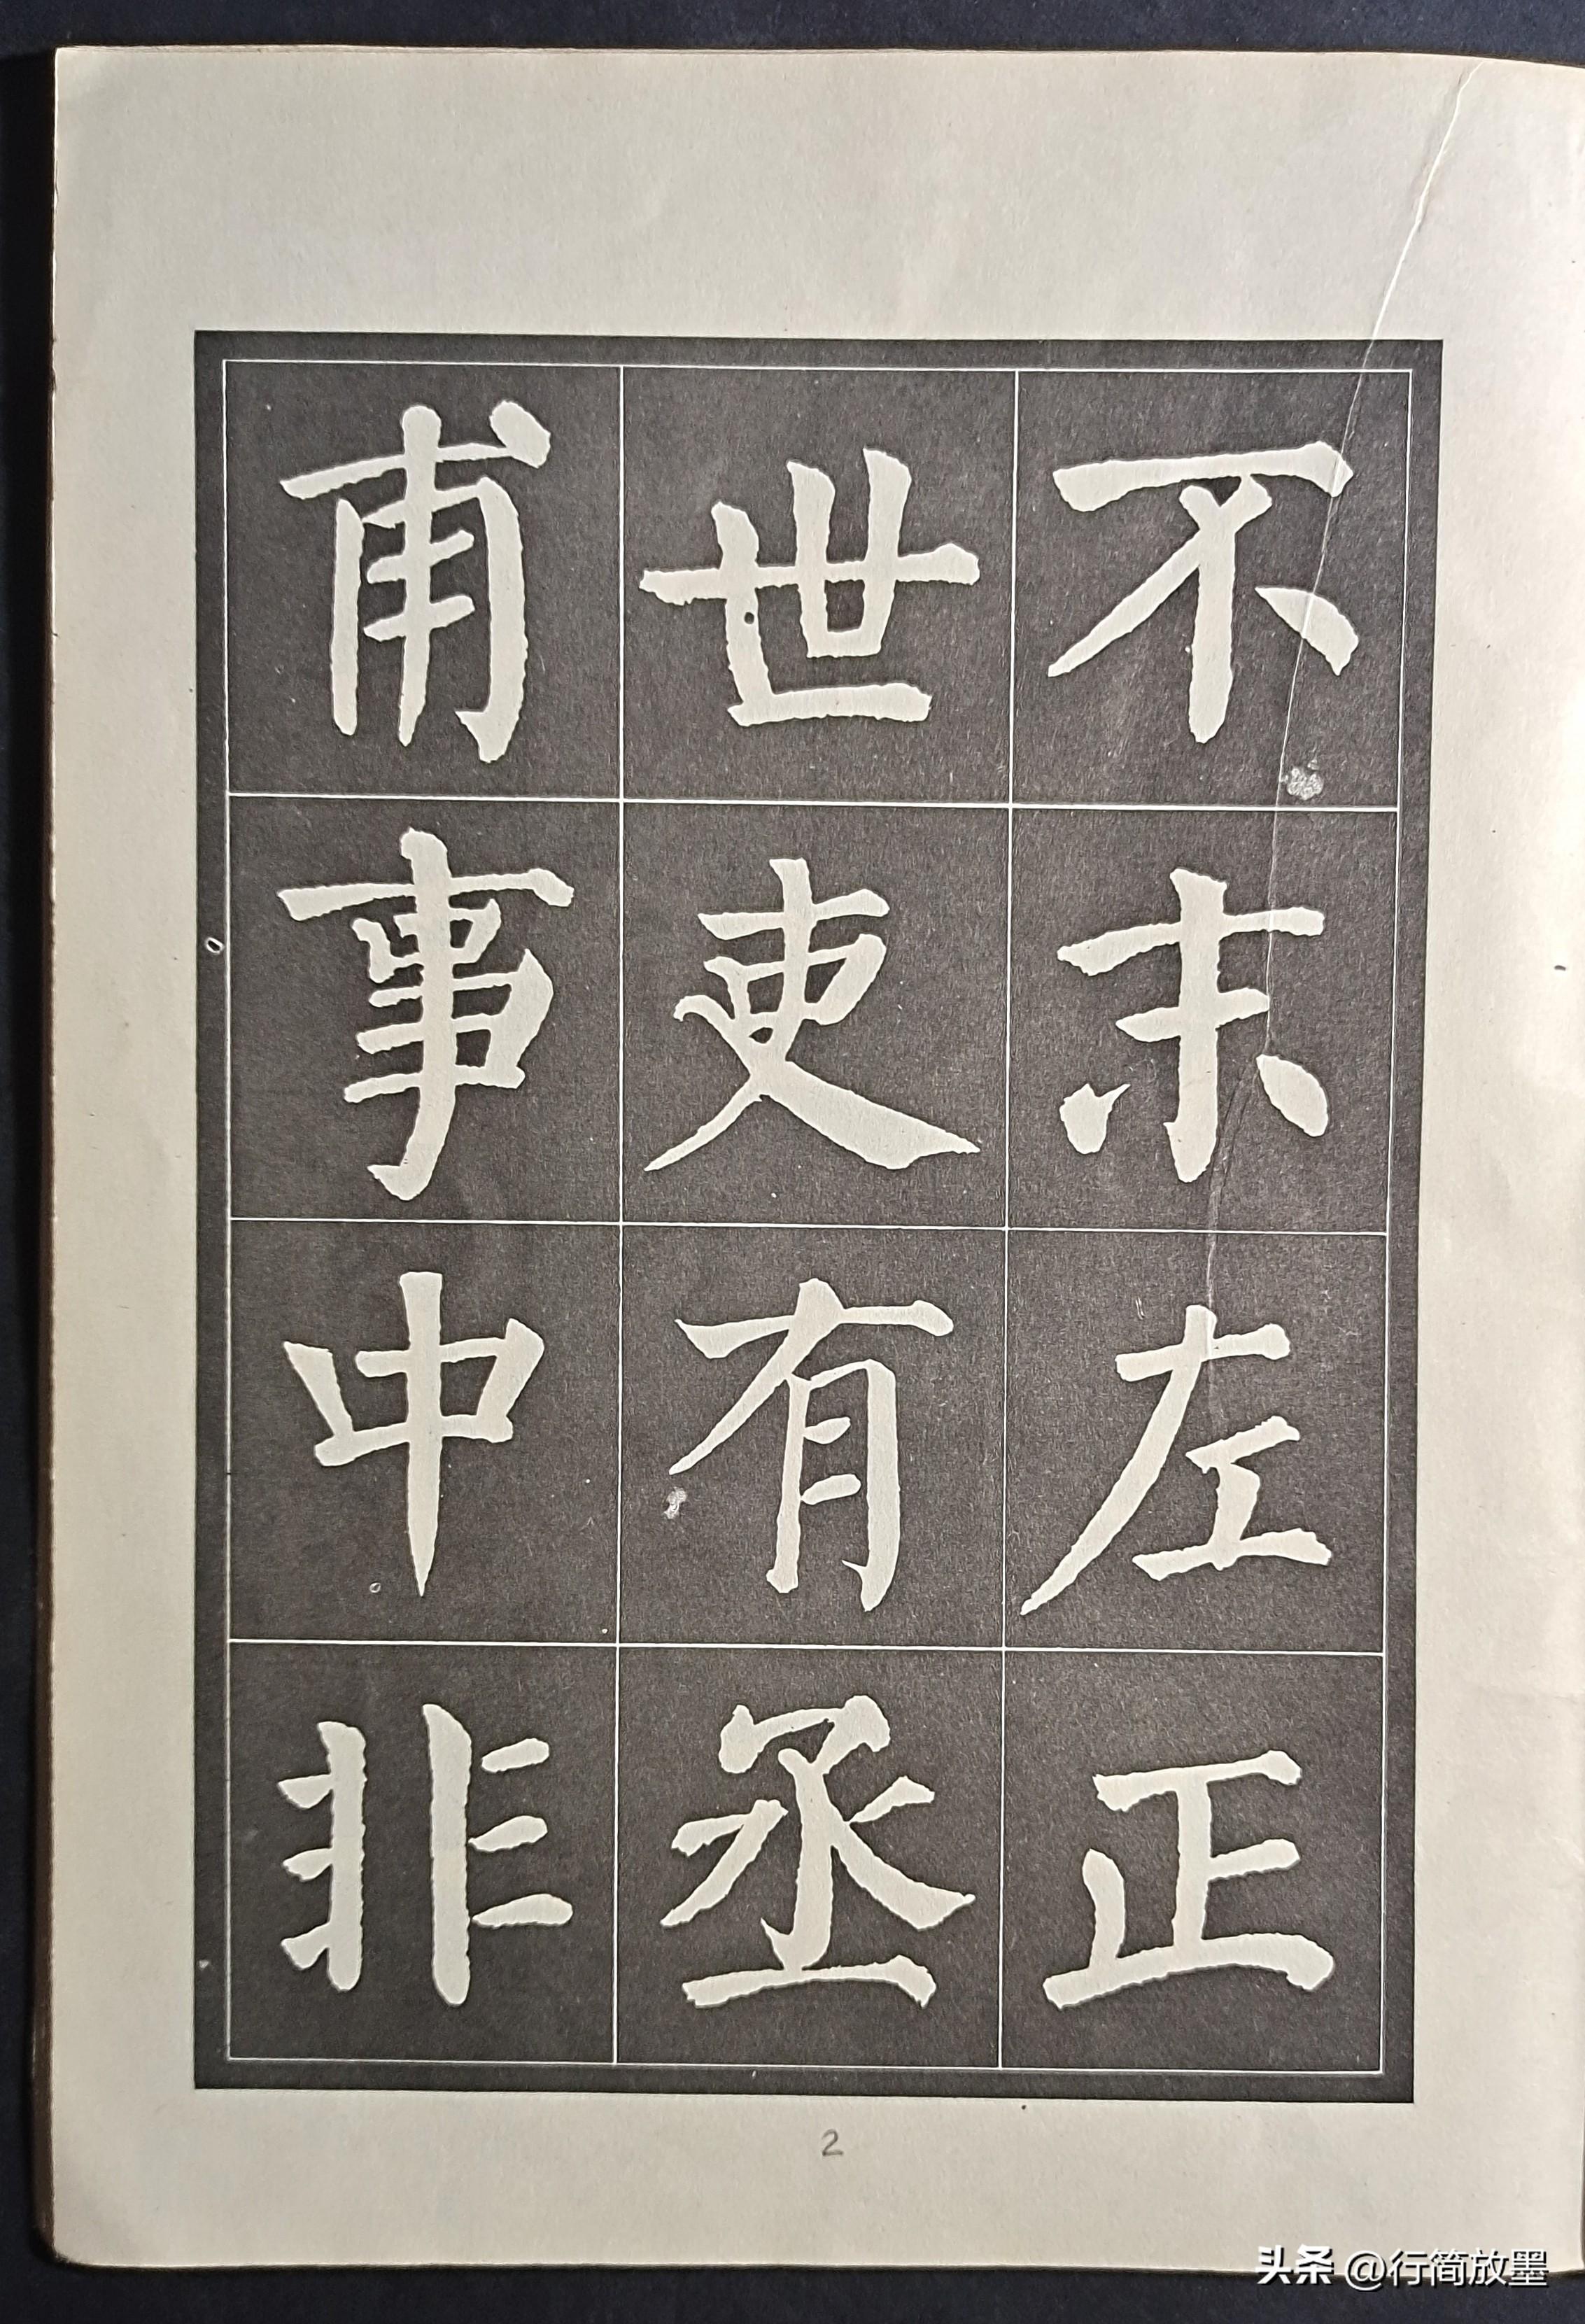 不末左正
世吏有丞
甫事中非
2
头条 @行简放墨